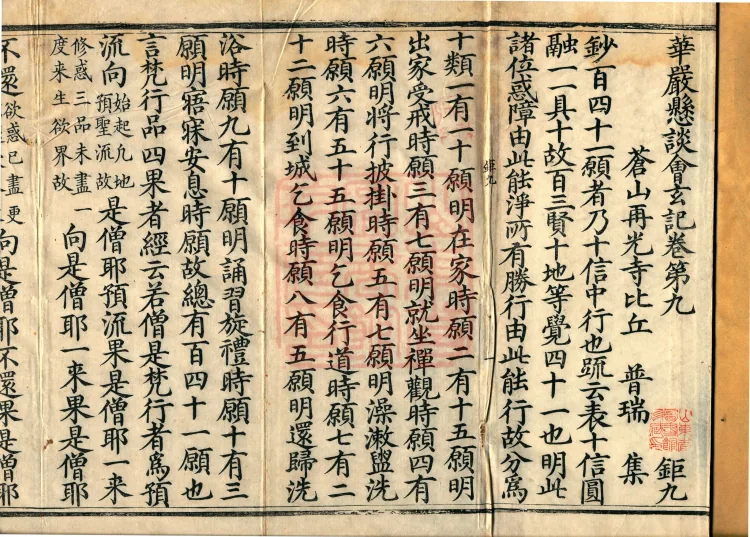 華嚴懸談會玄記卷第九
蒼山再光寺比丘 普瑞 集 鉅九
鈔百四十一願者乃十信中行也䟽云表十信圓
融一一具十故百三賢十地等覺四十一也明此
諸位惑障由此能淨所有勝行由此能行故分爲
鉅九
十類一有一十願明在家時願二有十五願明
出家受戒時願三有七願明就坐禪觀時願四有
六願明將行披掛時願五有七願明澡漱盥洗
時願六有五十五願明乞食行道時願七有二
十二願明到城乞食時願八有五願明還歸洗
浴時願九有十願明誦習旋禮時願十有三
願明寤寐安息時願故總有百四十一願也
言梵行品四果者經云若僧是梵行者爲預
流向始起九地預聖流故是僧耶預流果是僧耶一来
修惑三品未盡一度来生欲界故向是僧耶一来果是僧耶
不還欲惑已盡更向是僧耶不還果是僧耶